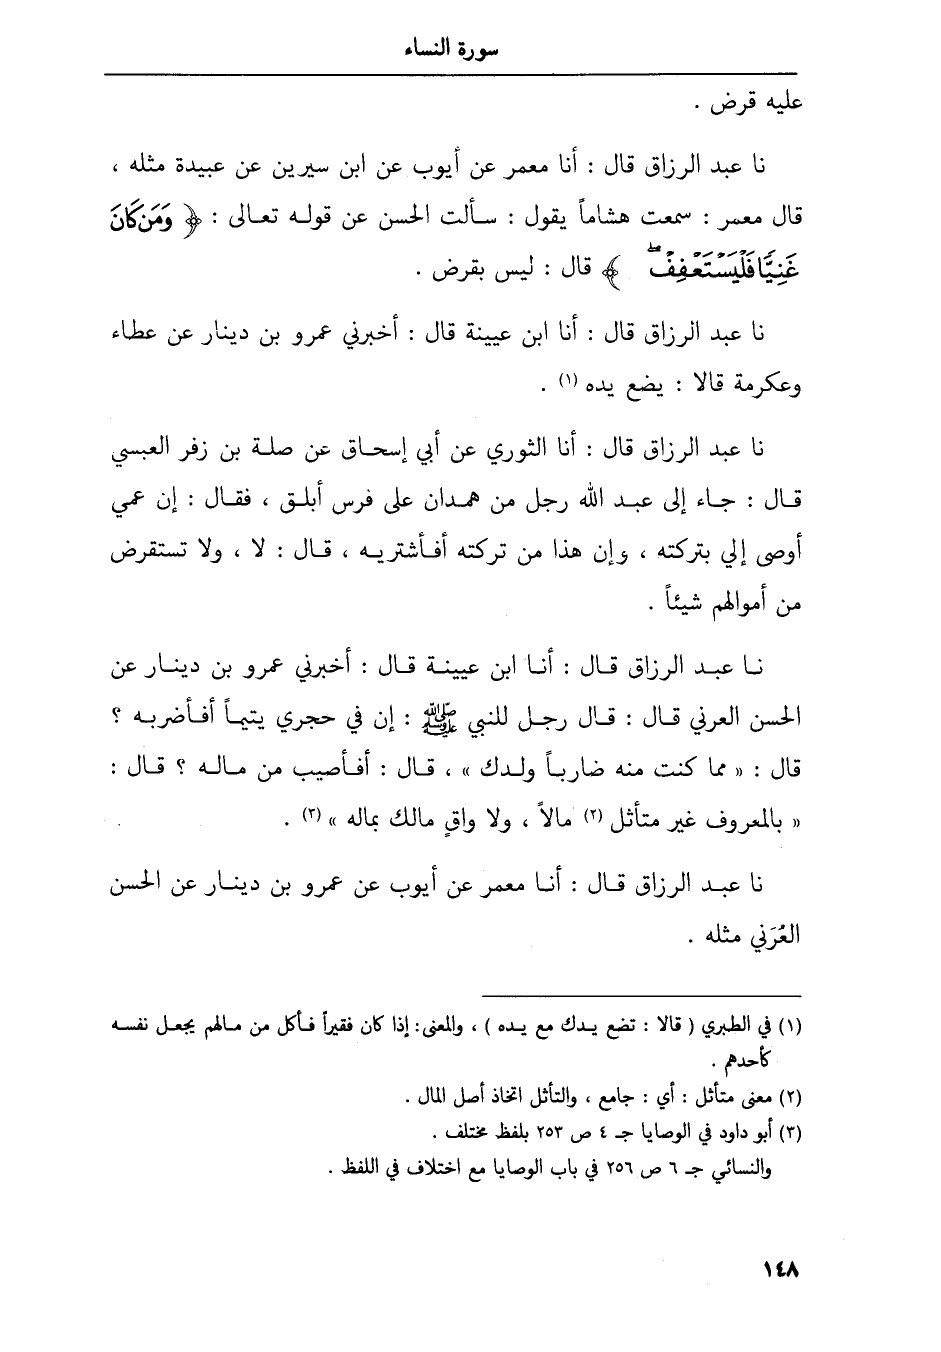 سورة النساء
عليه قرض .
نا عبد الرزاق قال : أنا معمر عن أيوب عن ابن سيرين عن عبيدة مثله ،
قال معمر : سمعت هشاماً يقول : سألت الحسن عن قوله تعالى : ﴿ وَمَن كَانَ
غَنِيًّا فَلْيَسْتَعْفِفْ ۖ ﴾ قال : ليس بقرض .
نا عبد الرزاق قال : أنا ابن عيينة قال : أخبرني عمرو بن دينار عن عطاء
وعكرمة قالا : يضع يده (١) .
نا عبد الرزاق قال : أنا الثوري عن أبي إسحاق عن صلة بن زفر العبسي
قال : جاء إلى عبد الله رجل من همدان على فرس أبلق ، فقال : إن عمي
أوصى إلي بتركته ، وإن هذا من تركته أفأشتريه ، قال : لا ، ولا تستقرض
من أموالهم شيئاً .
نا عبد الرزاق قال : أنا ابن عيينة قال : أخبرني عمرو بن دينار عن
الحسن العرني قال : قال رجل للنبي ﷺ : إن في حجري يتيماً أفأضربه ؟
قال : « مما كنت منه ضارباً ولدك » ، قال : أفأصيب من ماله ؟ قال :
« بالمعروف غير متأثل (٢) مالاً ، ولا واقٍ مالك بماله » (٣) .
نا عبد الرزاق قال : أنا معمر عن أيوب عن عمرو بن دينار عن الحسن
العُرَني مثله .
(١) في الطبري ( قالا : تضع يدك مع يده ) ، والمعنى : إذا كان فقيراً فأكل من مالهم يجعل نفسه
كأحدهم .
(٢) معنى متأثل : أي : جامع ، والتأثل اتخاذ أصل المال .
(٣) أبو داود في الوصايا جـ ٤ ص ٢٥٣ بلفظ مختلف .
والنسائي جـ ٦ ص ٢٥٦ في باب الوصايا مع اختلاف في اللفظ .
١٤٨